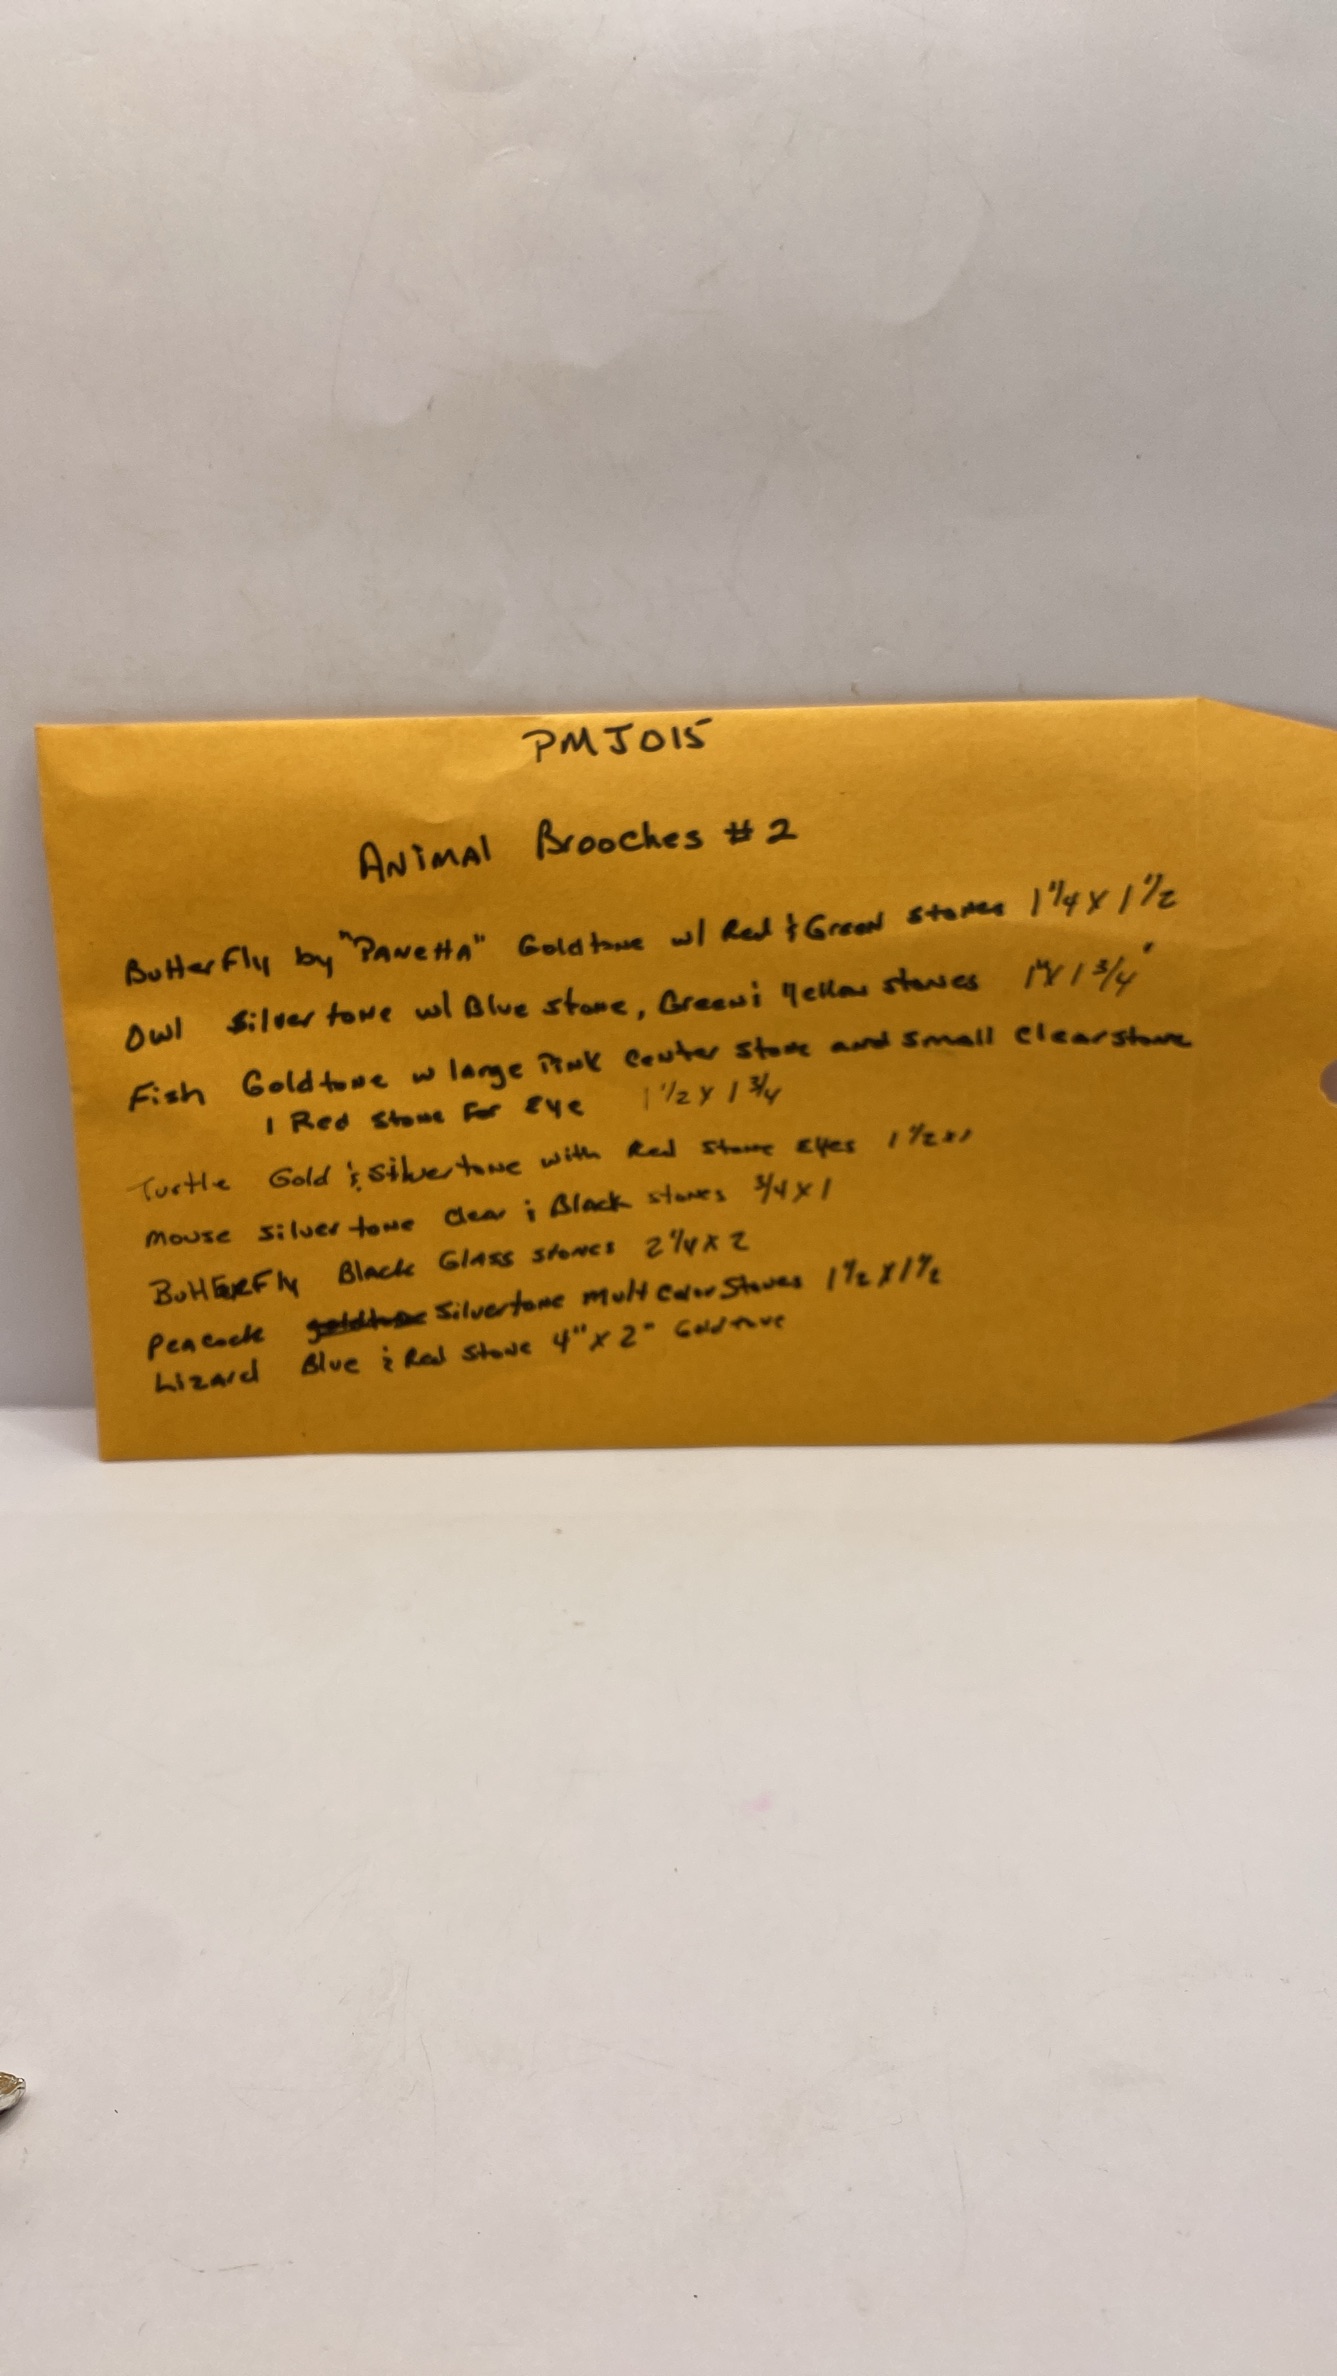 PMJ015
Animal Brooches #2
Butterfly by "Panetta" Goldtone w/ Red & Green stones 1 1/4 x 1 1/2
Owl Silvertone w/ Blue stone, Green & Yellow stones 1" x 1 3/4"
Fish Goldtone w large Pink Center stone and small clear stone
1 Red stone For Eye 1 1/2 x 1 3/4
Turtle Gold & Silvertone with Red stone Eyes 1 1/2 x 1
Mouse silvertone clear & Black stones 3/4 x 1
Butterfly Black Glass stones 2 1/4 x 2
Peacock Silvertone Mult Color Stones 1 1/2 x 1 1/2
Lizard Blue & Red Stone 4" x 2" Goldtone